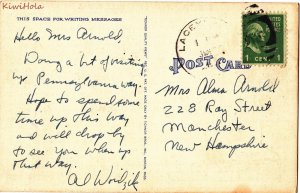 KiwiHola
THIS SPACE FOR WRITING MESSAGES
Hello Mrs Arnold,
Doing a bit of visiting
up Pennsylvania way.
Hope to spend some
time up this way
and will drop by
to see you when up
that way.
Al
POST CARD
Mrs Alma Arnold
228 Ray Street
Manchester
New Hampshire
LACEY
1 CENT 1